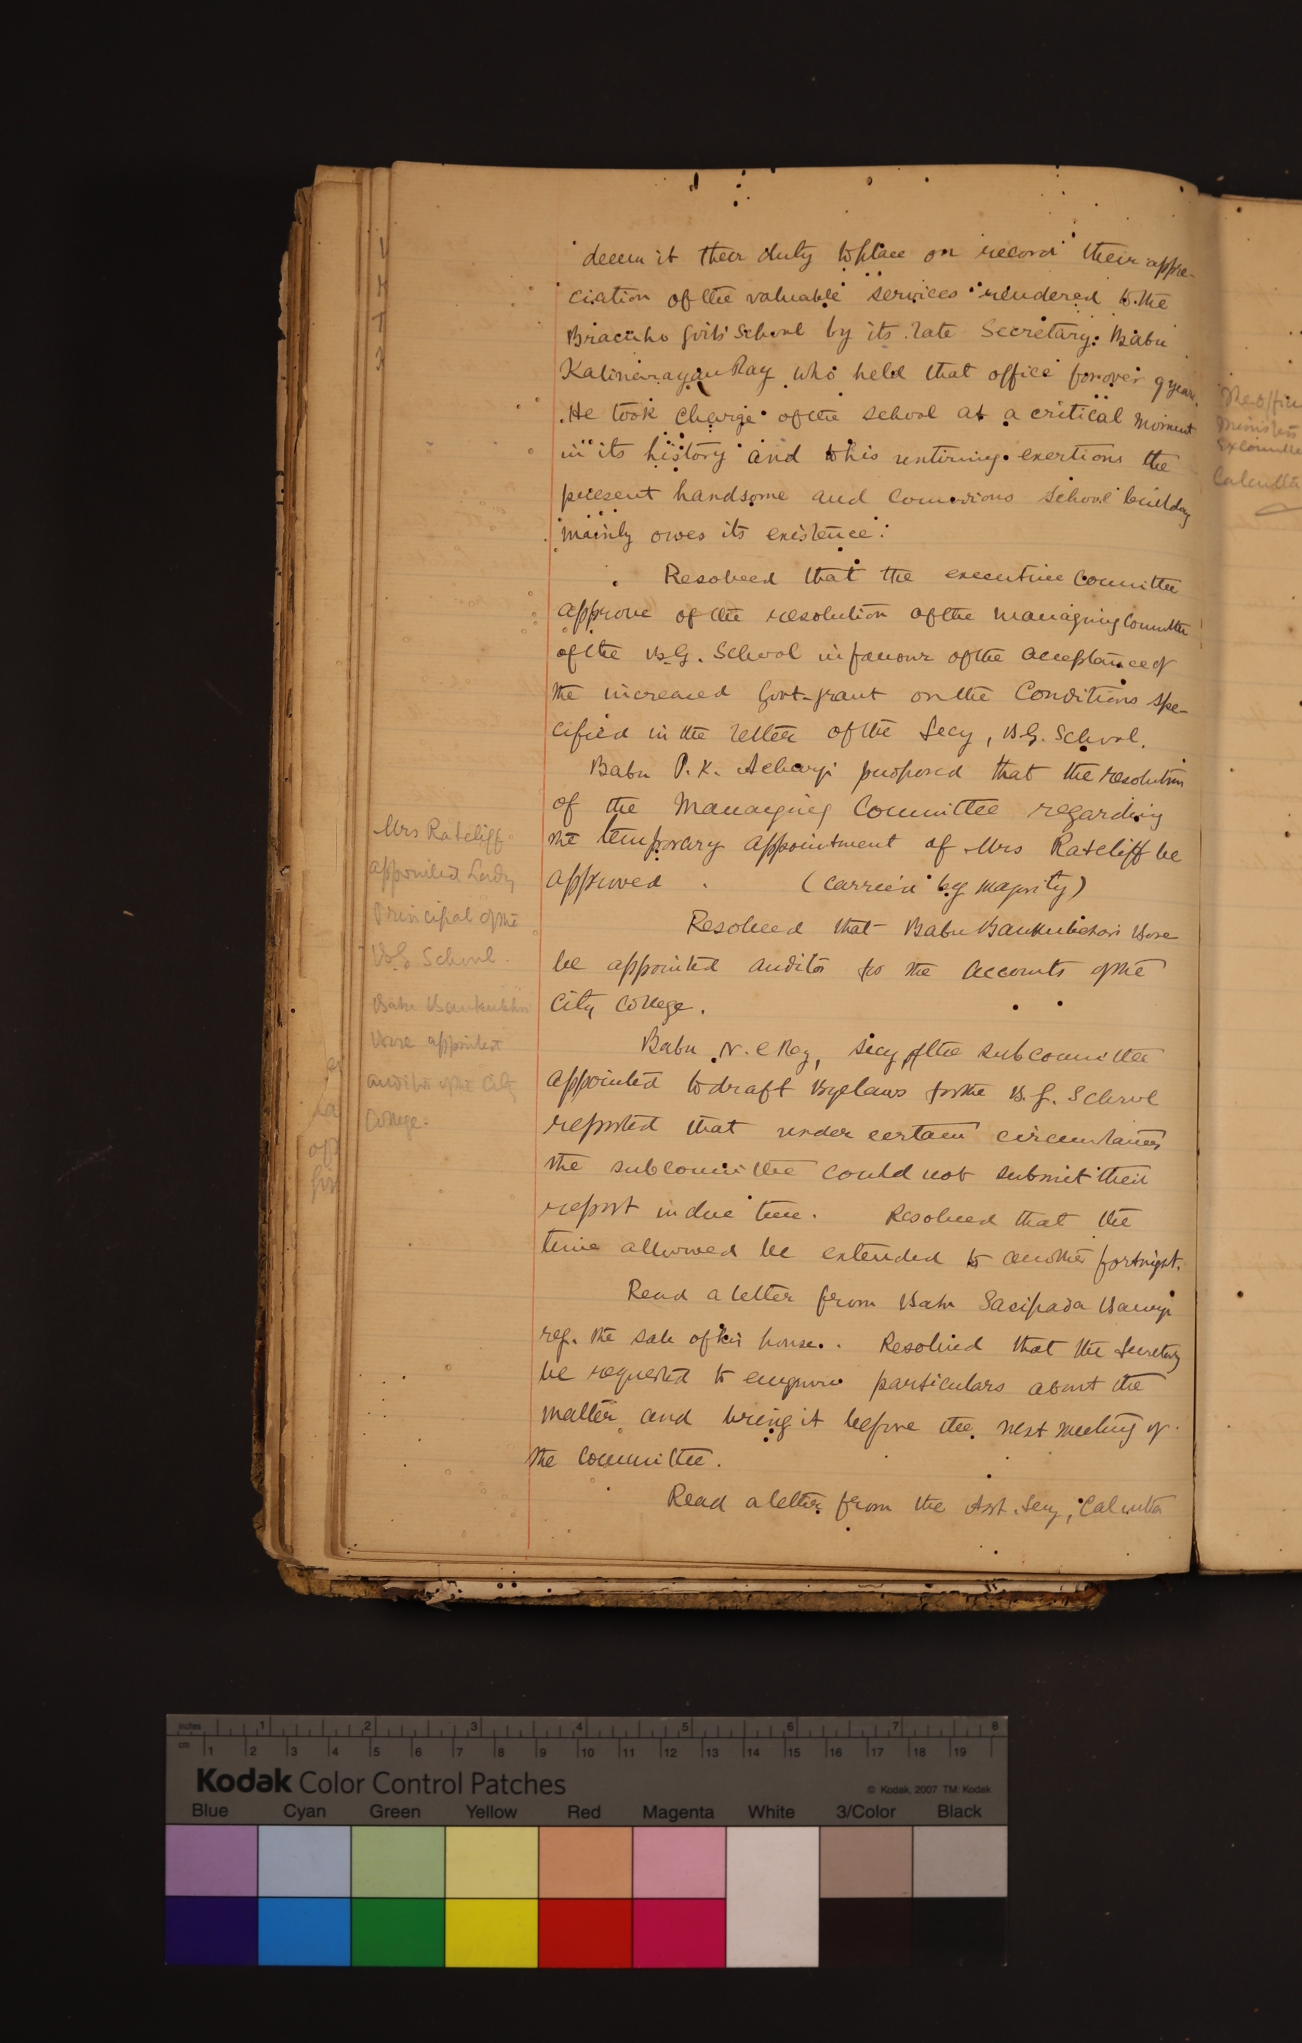 deem it their duty to place on record their appre-
ciation of the valuable services rendered to the
Bramho Girls' School by its late Secretary Babu
Kalinarayan Ray who held that office for over 9 years.
He took charge of the school at a critical moment
in its history and to his untiring exertions the
present handsome and comodious school building
mainly owes its existence.
Resolved that the executive Committee
approve of the resolution of the managing Committee
of the B.G. School in favour of the acceptance of
the increased Govt-grant on the Conditions spe-
cified in the letter of the Secy, B.G. School.
Babu P.K. Acharji proposed that the resolution
of the Managing Committee regarding
the temporary appointment of Mrs Ratcliff be
approved. (carried by majority)
Resolved that Babu Bankubehari Bose
be appointed auditor for the accounts of the
City College.
Babu N.C Roy, Secy of the subcommittee
appointed to draft Byelaws for the B.G. School
reported that under certain circumstances
the subcommittee could not submit their
report in due time. Resolved that the
time allowed be extended to another fortnight.
Read a letter from Babu Sasipada Banerji
reg. the sale of his house. Resolved that the Secretary
be requested to enquire particulars about the
matter and bring it before the next meeting of
the Committee.
Read a letter from the Asst. Secy, Calcutta
Mrs Ratcliff
appointed Lady
Principal of the
B.G. School.
Babu Bankubehari
Bose appointed
auditor of the City
College.
Calcutta
inches 1 2 3 4 5 6 7 8
cm 1 2 3 4 5 6 7 8 9 10 11 12 13 14 15 16 17 18 19
Kodak Color Control Patches
© Kodak, 2007 TM: Kodak
Blue Cyan Green Yellow Red Magenta White 3/Color Black